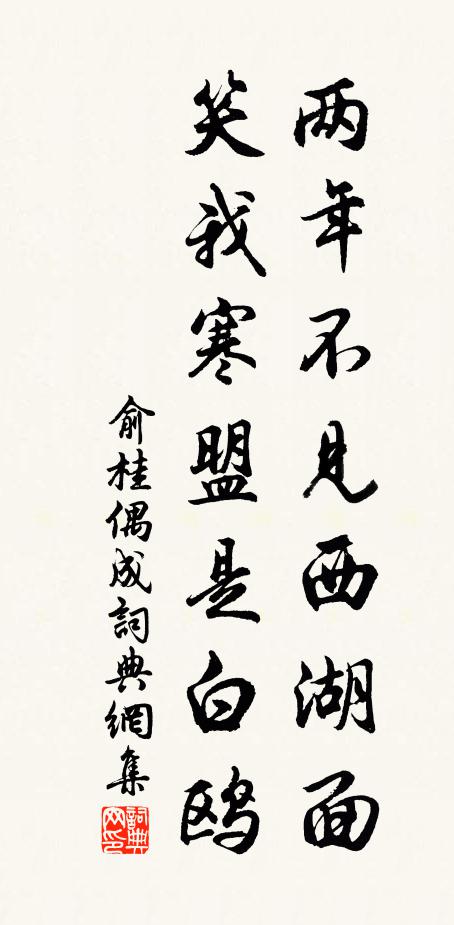 两年不见西湖面
笑我寒盟是白鸥
俞桂偶成詞典網集
詞典网印